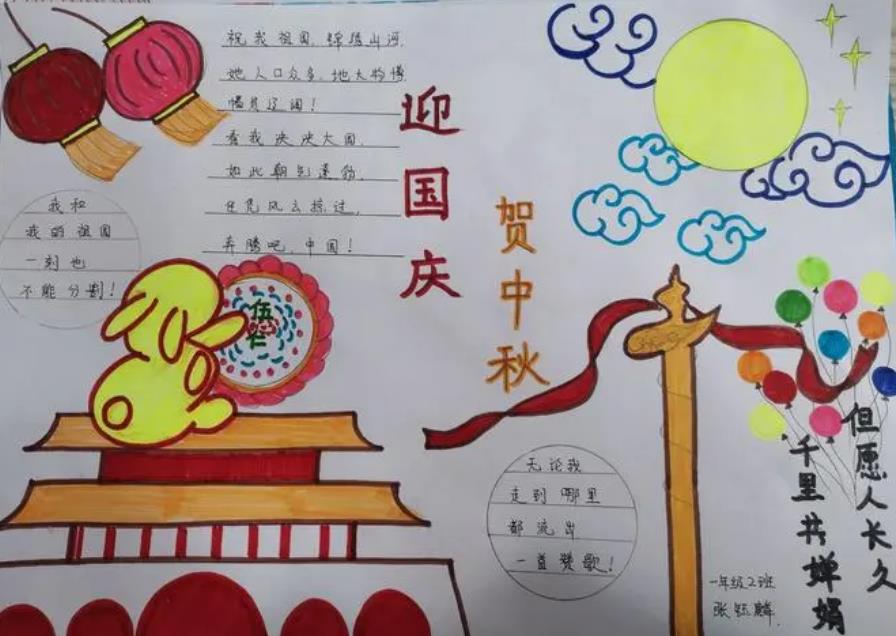 祝我祖国，锦绣山河，
她人口众多，地大物博
幅员辽阔！
看我泱泱大国，
如此朝气蓬勃，
任凭风云掠过，
奔腾吧，中国！
迎国庆
贺中秋
我和
我的祖国
一刻也
不能分割！
伍仁
无论我
走到哪里
都流出
一首赞歌！
但愿人长久
千里共婵娟
一年级2班
张钰麟